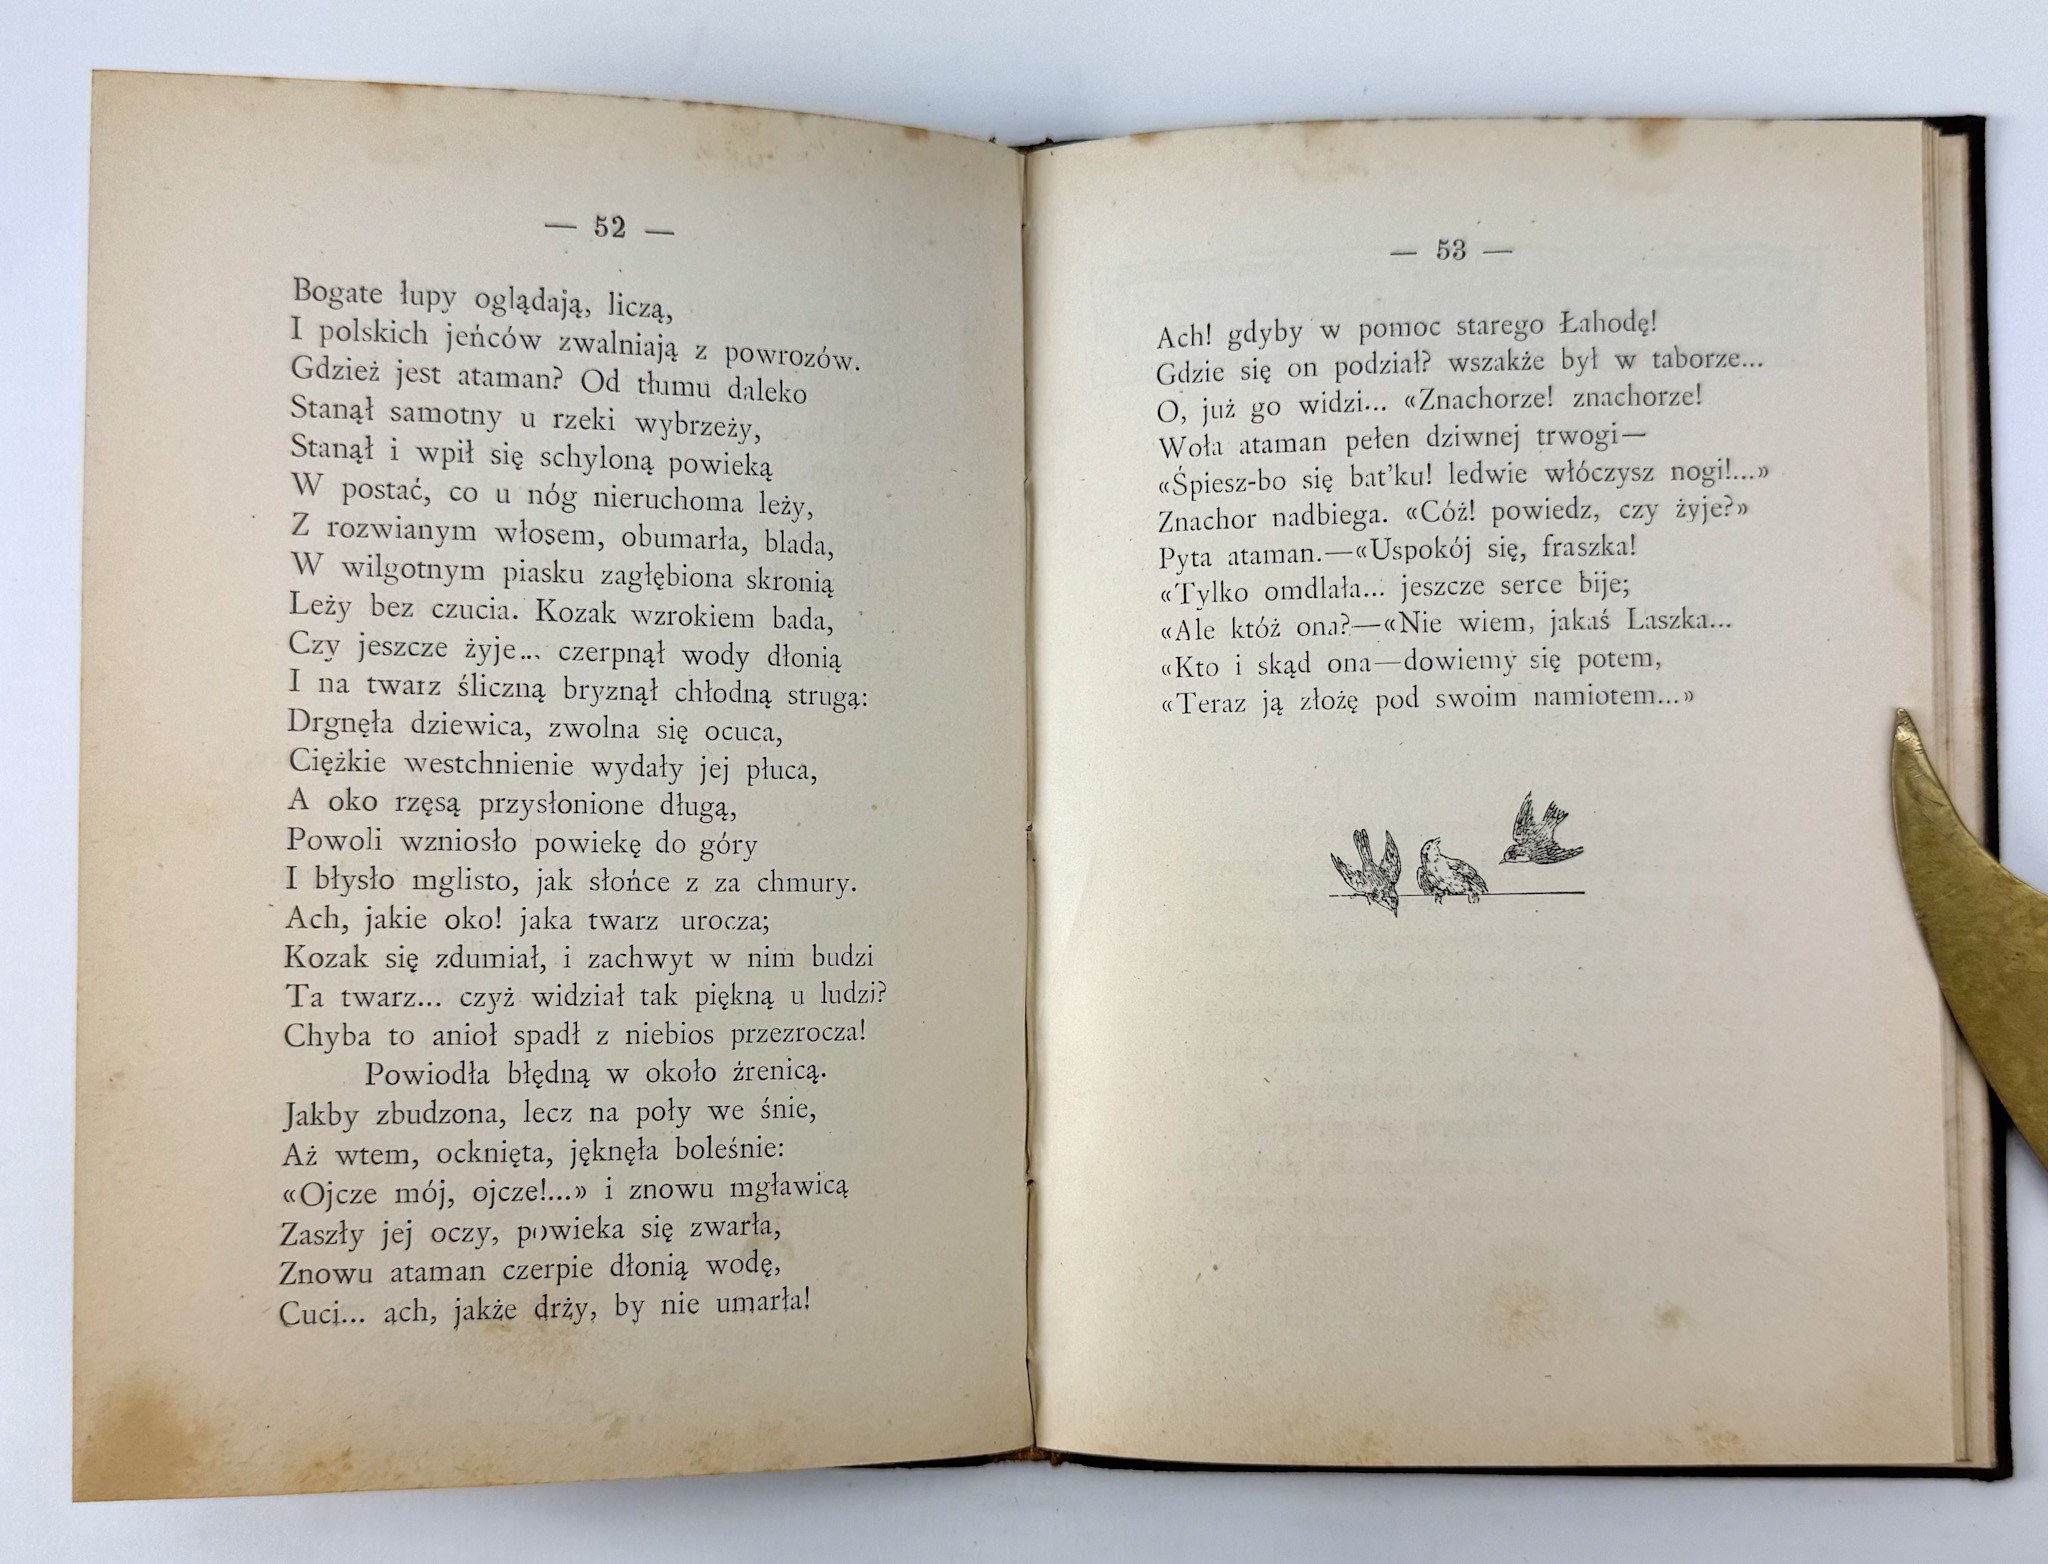 — 52 —
Bogate łupy oglądają, liczą,
I polskich jeńców zwalniają z powrozów.
Gdzież jest ataman? Od tłumu daleko
Stanął samotny u rzeki wybrzeży,
Stanął i wpił się schyloną powieką
W postać, co u nóg nieruchoma leży,
Z rozwianym włosem, obumarła, blada,
W wilgotnym piasku zagłębiona skronią
Leży bez czucia. Kozak wzrokiem bada,
Czy jeszcze żyje... czerpnął wody dłonią
I na twarz śliczną bryznął chłodną strugą:
Drgnęła dziewica, zwolna się ocuca,
Ciężkie westchnienie wydały jej płuca,
A oko rzęsą przysłonione długą,
Powoli wzniosło powiekę do góry
I błysło mglisto, jak słońce z za chmury.
Ach, jakie oko! jaka twarz urocza;
Kozak się zdumiał, i zachwyt w nim budzi
Ta twarz... czyż widział tak piękną u ludzi?
Chyba to anioł spadł z niebios przezrocza!
Powiodła błędną w około źrenicą.
Jakby zbudzona, lecz na poły we śnie,
Aż wtem, ocknięta, jęknęła boleśnie:
«Ojcze mój, ojcze!...» i znowu mgławicą
Zaszły jej oczy, powieka się zwarła,
Znowu ataman czerpie dłonią wodę,
Cuci... ach, jakże drży, by nie umarła!
— 53 —
Ach! gdyby w pomoc starego Łahodę!
Gdzie się on podział? wszakże był w taborze...
O, już go widzi... «Znachorze! znachorze!
Woła ataman pełen dziwnej trwogi—
«Śpiesz-bo się bat'ku! ledwie włóczysz nogi!...»
Znachor nadbiega. «Cóż! powiedz, czy żyje?»
Pyta ataman.—«Uspokój się, fraszka!
«Tylko omdlała... jeszcze serce bije;
«Ale któż ona?—«Nie wiem, jakaś Laszka...
«Kto i skąd ona—dowiemy się potem,
«Teraz ją złożę pod swoim namiotem...»